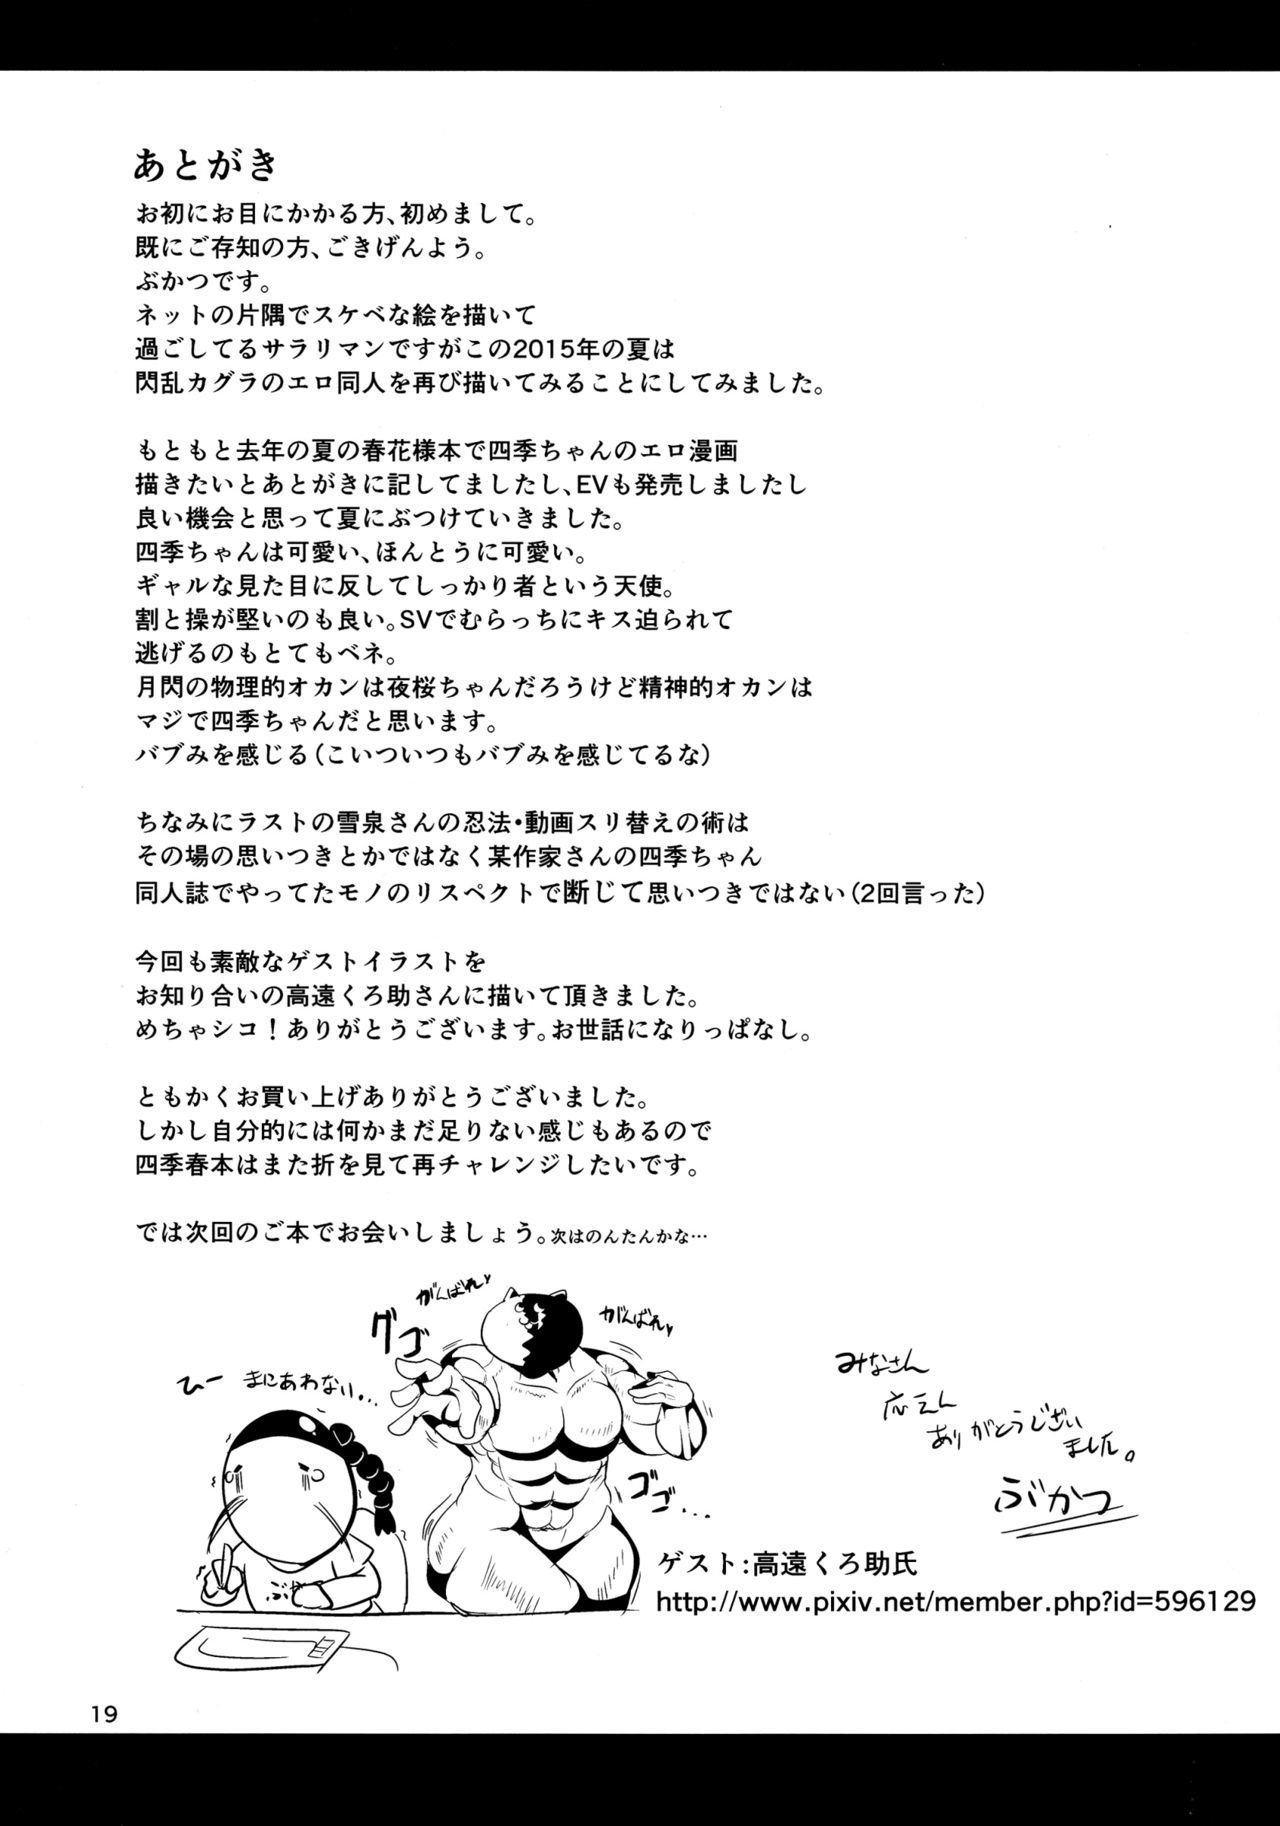 あとがき
お初にお目にかかる方、初めまして。
既にご存知の方、ごきげんよう。
ぶかつです。
ネットの片隅でスケベな絵を描いて
過ごしてるサラリマンですがこの2015年の夏は
閃乱カグラのエロ同人を再び描いてみることにしてみました。
もともと去年の夏の春花様本で四季ちゃんのエロ漫画
描きたいとあとがきに記してましたし、EVも発売しましたし
良い機会と思って夏にぶつけていきました。
四季ちゃんは可愛い、ほんとうに可愛い。
ギャルな見た目に反してしっかり者という天使。
割と操が堅いのも良い。SVでむらっちにキス迫られて
逃げるのもとてもベネ。
月閃の物理的オカンは夜桜ちゃんだろうけど精神的オカンは
マジで四季ちゃんだと思います。
バブみを感じる(こいついつもバブみを感じてるな)
ちなみにラストの雪泉さんの忍法・動画スリ替えの術は
その場の思いつきとかではなく某作家さんの四季ちゃん
同人誌でやってたモノのリスペクトで断じて思いつきではない(2回言った)
今回も素敵なゲストイラストを
お知り合いの高遠くろ助さんに描いて頂きました。
めちゃシコ!ありがとうございます。お世話になりっぱなし。
ともかくお買い上げありがとうございました。
しかし自分的には何かまだ足りない感じもあるので
四季春本はまた折を見て再チャレンジしたいです。
では次回のご本でお会いしましょう。次はのんたんかな…
がんばれ♥
がんばれ♥
グゴゴ
ひー まにあわない...
ゴゴ...
ぶか
みなさん
応えん
ありがとうござい
ました。
ぶかつ
ゲスト:高遠くろ助氏
http://www.pixiv.net/member.php?id=596129
19